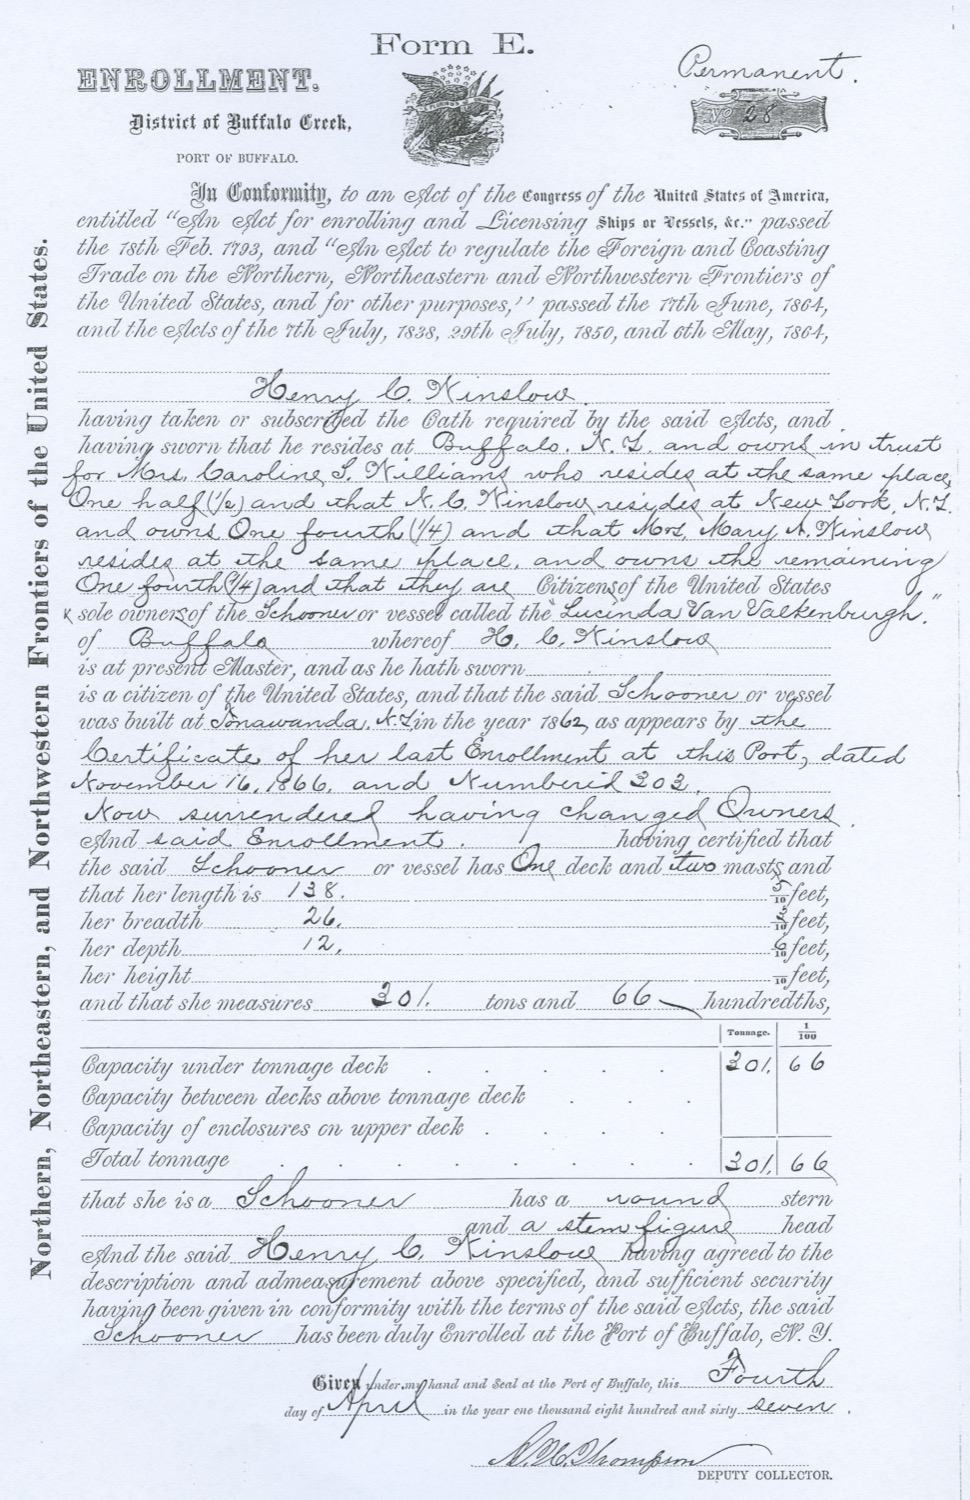 Form E.
Permanent.
ENROLLMENT.
No 28
District of Buffalo Creek,
PORT OF BUFFALO.
In Conformity, to an Act of the Congress of the United States of America,
entitled "An Act for enrolling and Licensing Ships or Vessels, &c." passed
the 18th Feb. 1793, and "An Act to regulate the Foreign and Coasting
Trade on the Northern, Northeastern and Northwestern Frontiers of
the United States, and for other purposes,'' passed the 17th June, 1864,
and the Acts of the 7th July, 1838, 29th July, 1850, and 6th May, 1864,
Henry C. Winslow.
having taken or subscribed the Oath required by the said Acts, and
having sworn that he resides at Buffalo. N.Y. and owns in trust
for Mrs. Caroline S. Williams who resides at the same place
One half (1/2) and that N. C. Winslow resides at New York, N.Y.
and owns One fourth (1/4) and that Mrs, Mary A. Winslow
resides at the same place, and owns the remaining
One fourth (1/4) and that they are Citizens of the United States
sole owners of the Schooner or vessel called the "Lucinda Van Valkenburgh."
of Buffalo whereof H. C. Winslow
is at present Master, and as he hath sworn
is a citizen of the United States, and that the said Schooner or vessel
was built at Tonawanda, N.Y. in the year 1862, as appears by the
Certificate of her last Enrollment at this Port, dated
November 16, 1866, and Numbered 202.
Now surrendered having changed Owners.
And said Enrollment. having certified that
the said Schooner or vessel has One deck and two masts and
that her length is 138. 5/10 feet,
her breadth 26. /10 feet,
her depth 12. 6/10 feet,
her height /10 feet,
and that she measures 301. tons and 66 hundredths,
Tonnage. 1/100
Capacity under tonnage deck 301. 66
Capacity between decks above tonnage deck
Capacity of enclosures on upper deck
Total tonnage 301. 66
that she is a Schooner has a round stern
and a stem figure head
And the said Henry C. Winslow having agreed to the
description and admeasurement above specified, and sufficient security
having been given in conformity with the terms of the said Acts, the said
Schooner has been duly Enrolled at the Port of Buffalo, N. Y.
Given under my hand and Seal at the Port of Buffalo, this Fourth
day of April in the year one thousand eight hundred and sixty seven.
Thompson
DEPUTY COLLECTOR.
Northern, Northeastern, and Northwestern Frontiers of the United States.